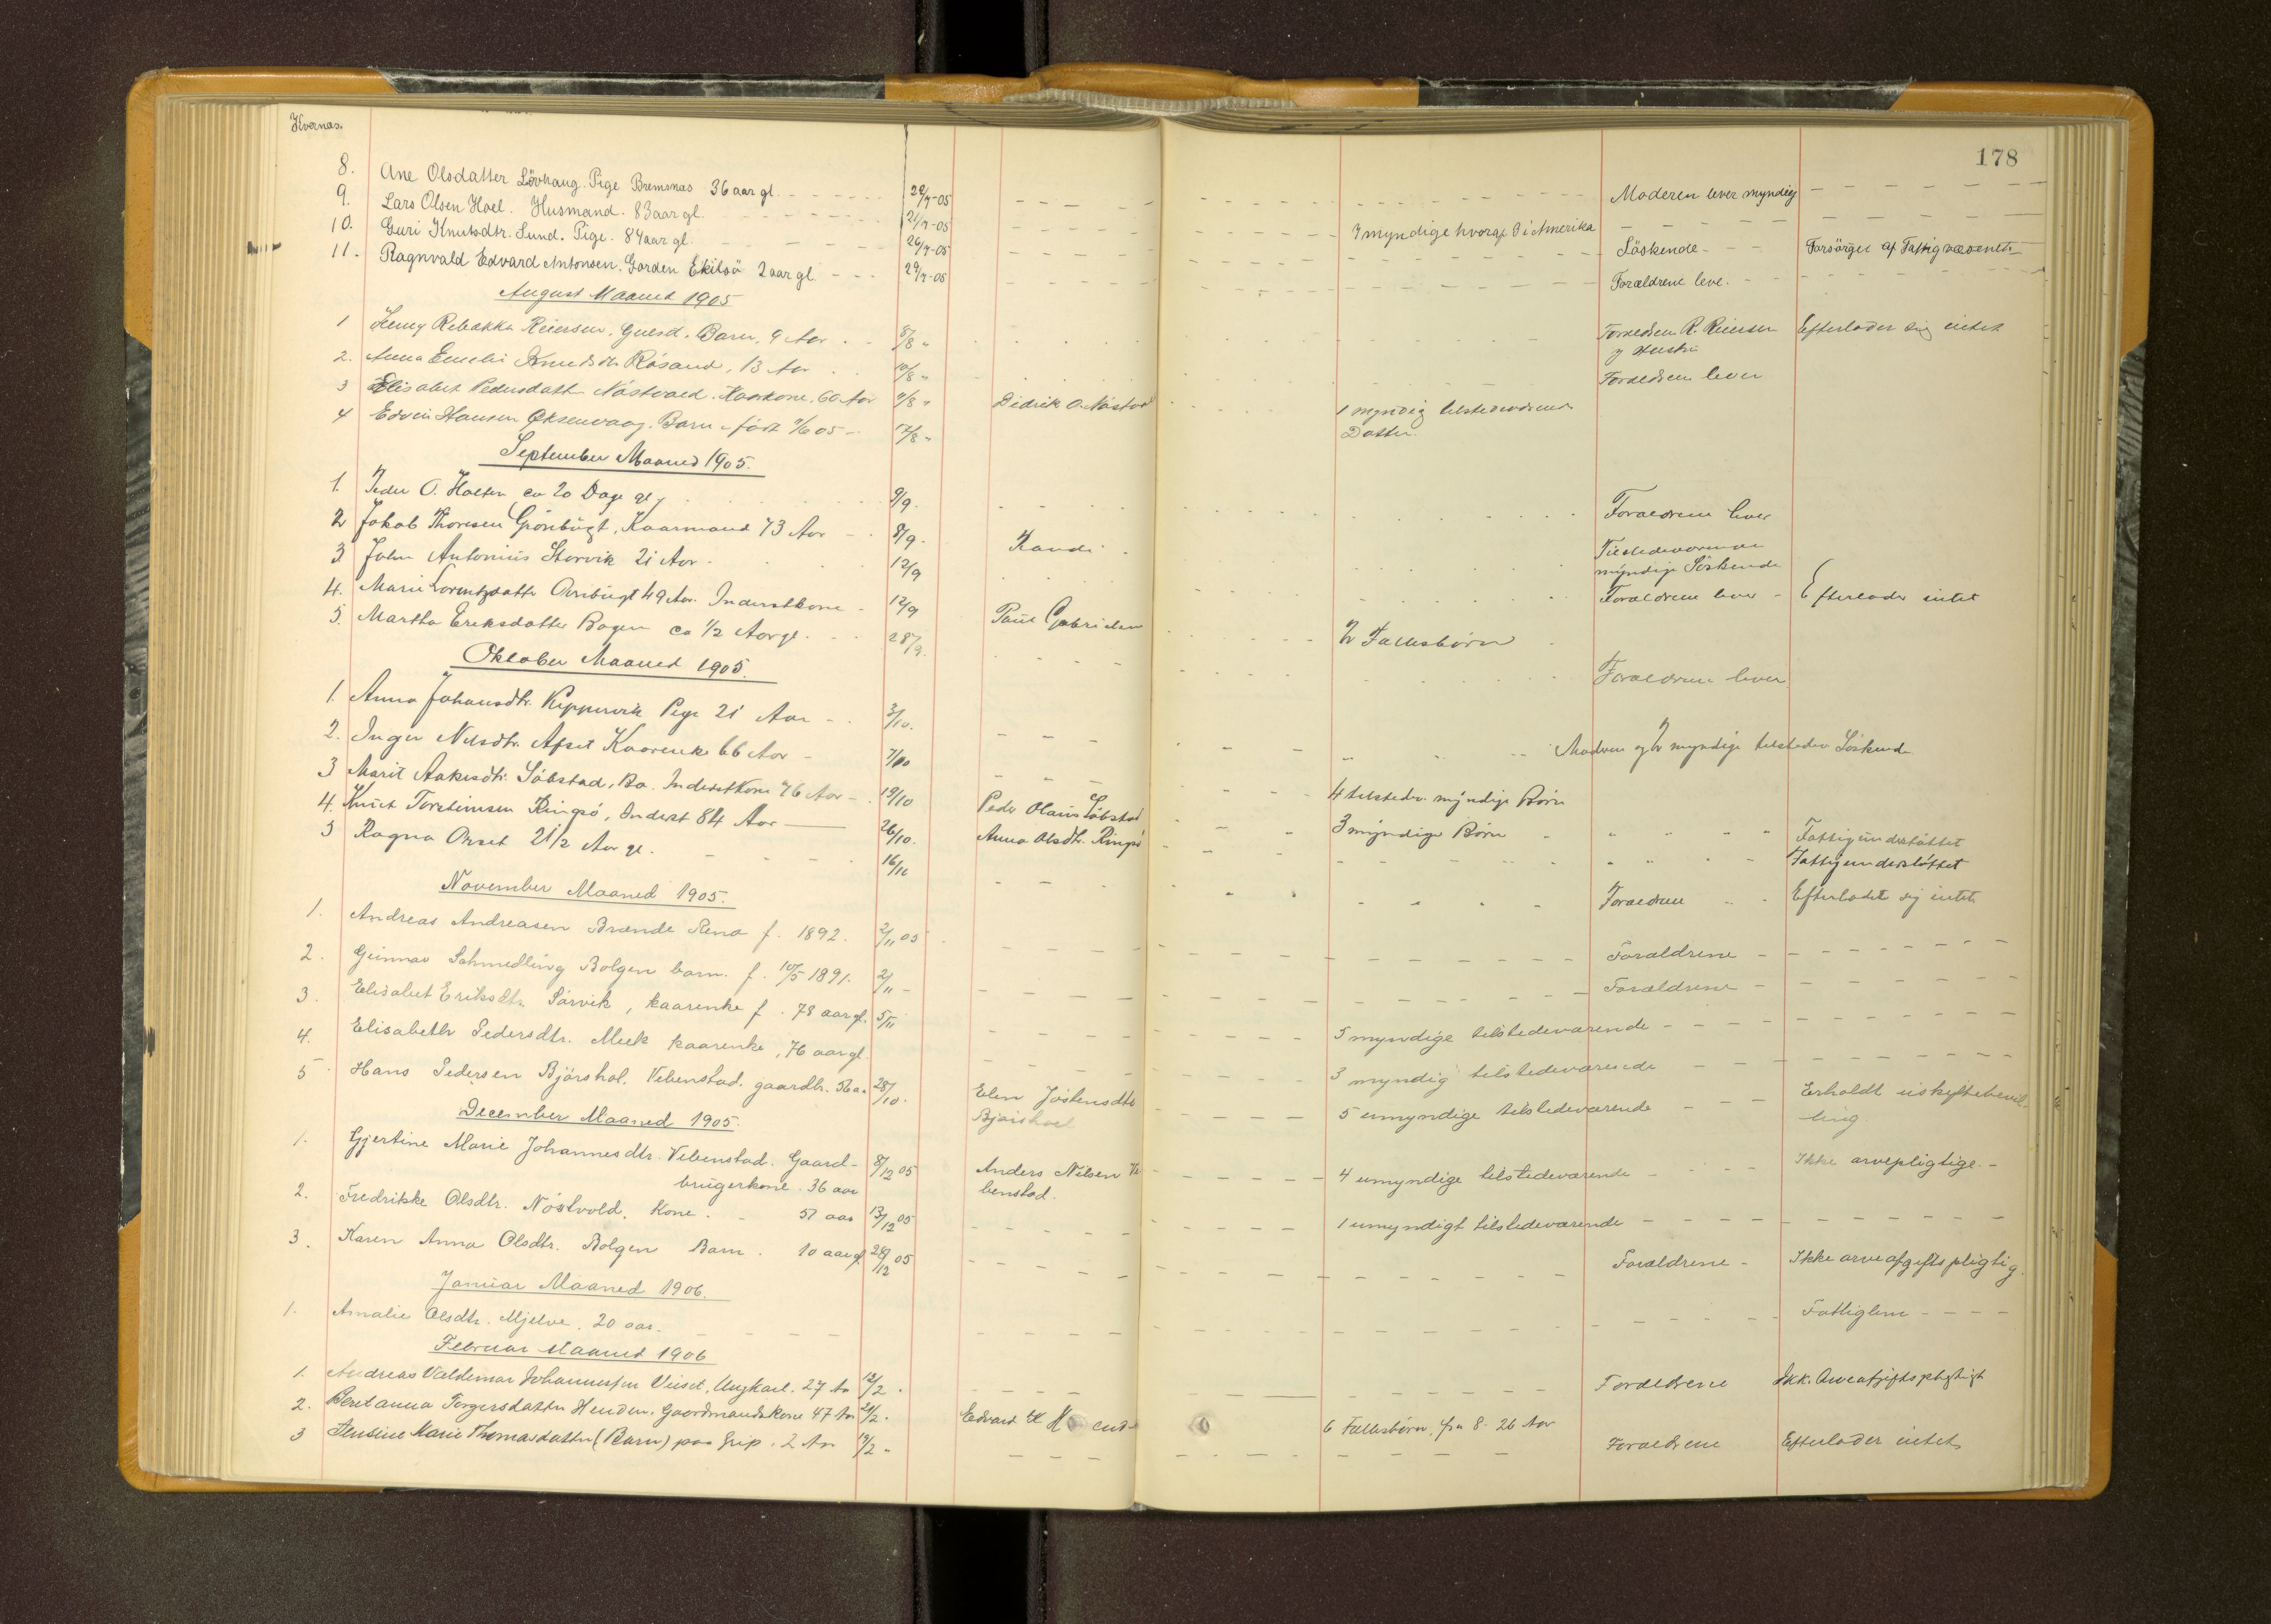 Kvernæs.
178
8. Ane Olsdatter Lövhaug. Pige Bremsnæs 36 aar gl. 29/7-05 Moderen lever myndig
9. Lars Olsen Hoel. Husmand. 83 aar gl. 21/7-05 7 myndige hvoraf 3 i Amerika
10. Guri Knutsdtr. Sund. Pige. 84 aar gl. 26/7-05 Söskende Forsörget af Fattigvæsenet
11. Ragnvald Edvard Antonsen. Garden Ekilsö 2 aar gl. 29/7-05 Forældrene leve.
August Maaned 1905
1 Jenny Rebakka Reiersen, Barn, 9 Aar 8/8 " Forældren R. Reiersen Efterlader sig intet
og Hustru
2. Anna Emelie Knudsdtr Røsand, 13 Aar 10/8 " Forældren lever
3 Elisabet Pedersdatter Nástvold. Kaarkone, 60 Aar 9/8 " Didrik O. Nástvo 1 myndig tilstedeværende
Datter.
4 Edvin Hansen Oksenvaag. Barn født 9/6 05 17/8 "
September Maaned 1905.
1. Peder O. Holten ca 20 Dage gl 9/9. Forældrene lever
2 Jakob Thoresen Grönbugt, Kaarmand 73 Aar 8/9. Tilstedeværende
myndige Söskende
3 John Antonius Storvik 21 Aar 12/9 Forældrene lever Efterlader intet
4. Marie Lorentzdatter 49 Aar. Inderstkone 12/9 Paul Gabrielsen 2 Fællesbörn
5. Martha Ereksdatter Bagen ca 1/2 Aar gl. 28/9. Forældrene lever
Oktober Maaned 1905.
1. Anna Johansdtr. Kippervik Pige 21 Aar 3/10. Modren og 2 myndige tilstedev Söskend
2. Inger Nilsdtr. Afset Kaarenke 66 Aar 7/10 4 tilstedev. myndige Börn
3 Marit Aakesdtr. Söbstad, Ba. Inderstkone 76 Aar 19/10 Peder Olaus Söbstad 3 myndige Börn Fattigunderstöttet
4. Knut Torstensen Ringsö, Inderst 84 Aar 26/10. Anna Olsdtr. Ringsö Fattigunderstöttet
5 Ragna Orset 2 1/2 Aar gl. Forældrene Efterladet sig intet
November Maaned 1905.
1. Andreas Andreasen Brænde Rena f. 1892. 2/11 05 Forældrene
2. Gunnar Schmedling Bolgen barn. f. 10/5 1891. 2/11 Forældrene
3. Elisabet Eriksdtr Sörvik, kaarenke f. 78 aar gl. 5/11 5 myndige tilstedeværende
4. Elisabeth Pedersdtr. Meek kaarenke, 76 aar gl. 3 myndig tilstedeværende
5 Hans Pedersen Bjørshol. Vebenstad. gaardbr. 28/10. Elen Jöstensdtr 5 umyndige tilstedeværende Erholdt uskyftebevil-
Bjørshoel ling.
December Maaned 1905.
1. Gjertine Marie Johannesdtr. Vebenstad. Gaard- 8/12 05 Anders Nilsen Ve 4 umyndige tilstedeværende Ikke arvepligtige.
brugerkone. 36 aar benstad.
2. Fredrikke Olsdtr. Nöstvold. Kone. 57 aar 13/12 05 1 umyndigt tilstedeværende
3. Karen Anna Olsdtr. Bolgen Barn. 10 aar gl. 29/12 05 Forældrene Ikke arveafgiftspligtig.
Januar Maaned 1906.
1. Amalie Olsdtr. Mjelve. 20 aar. Fattiglem
Februar Maaned 1906
1. Andreas Valdemar Johannessen Viiset, Ungkarl. 27 Aar 12/2. Foreldrene Ikke Arveafgiftspligtigt
2. Beret Anna Torgersdatter Henden. Gaardmandskone 47 Aar 21/2. Edvard 6 Fællesbörn, fra 8-26 Aar
3 Jensine Marie Thomasdatter (Barn) paa Grip. 2 Aar 19/2 " Foreldrene Efterlader intet